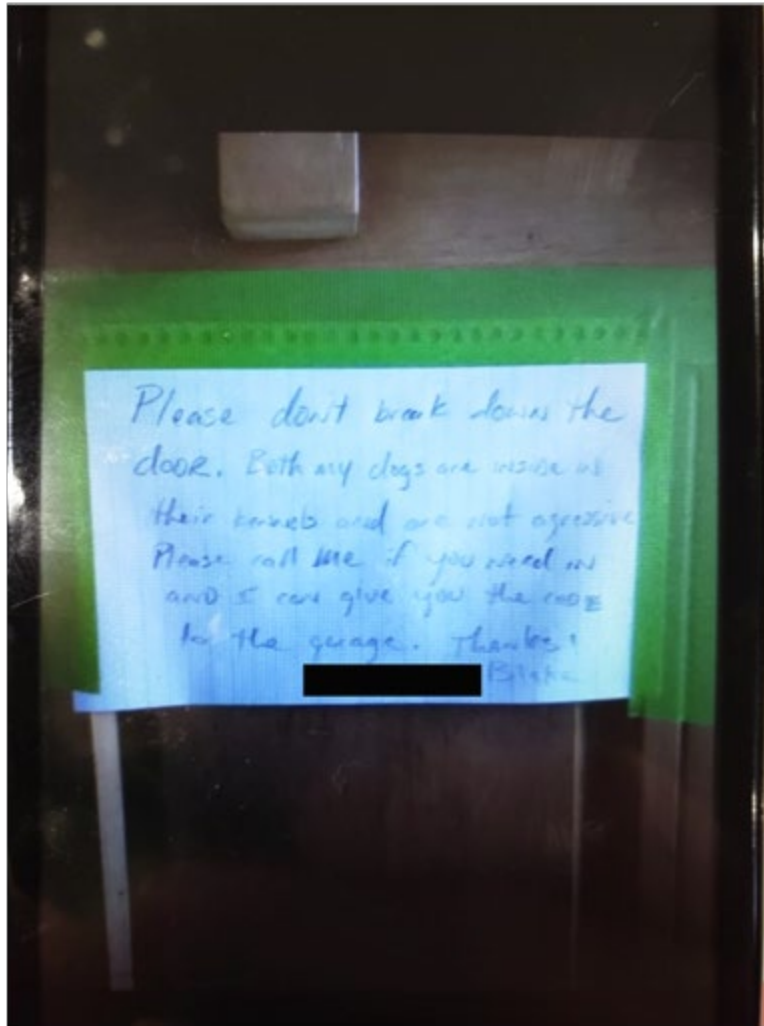 Please don't break down the
dooR. Both my dogs are inside in
their kennels and are not agressive
Please call me if you need in
AND I can give you the code
to the garage. Thanks!
Blake